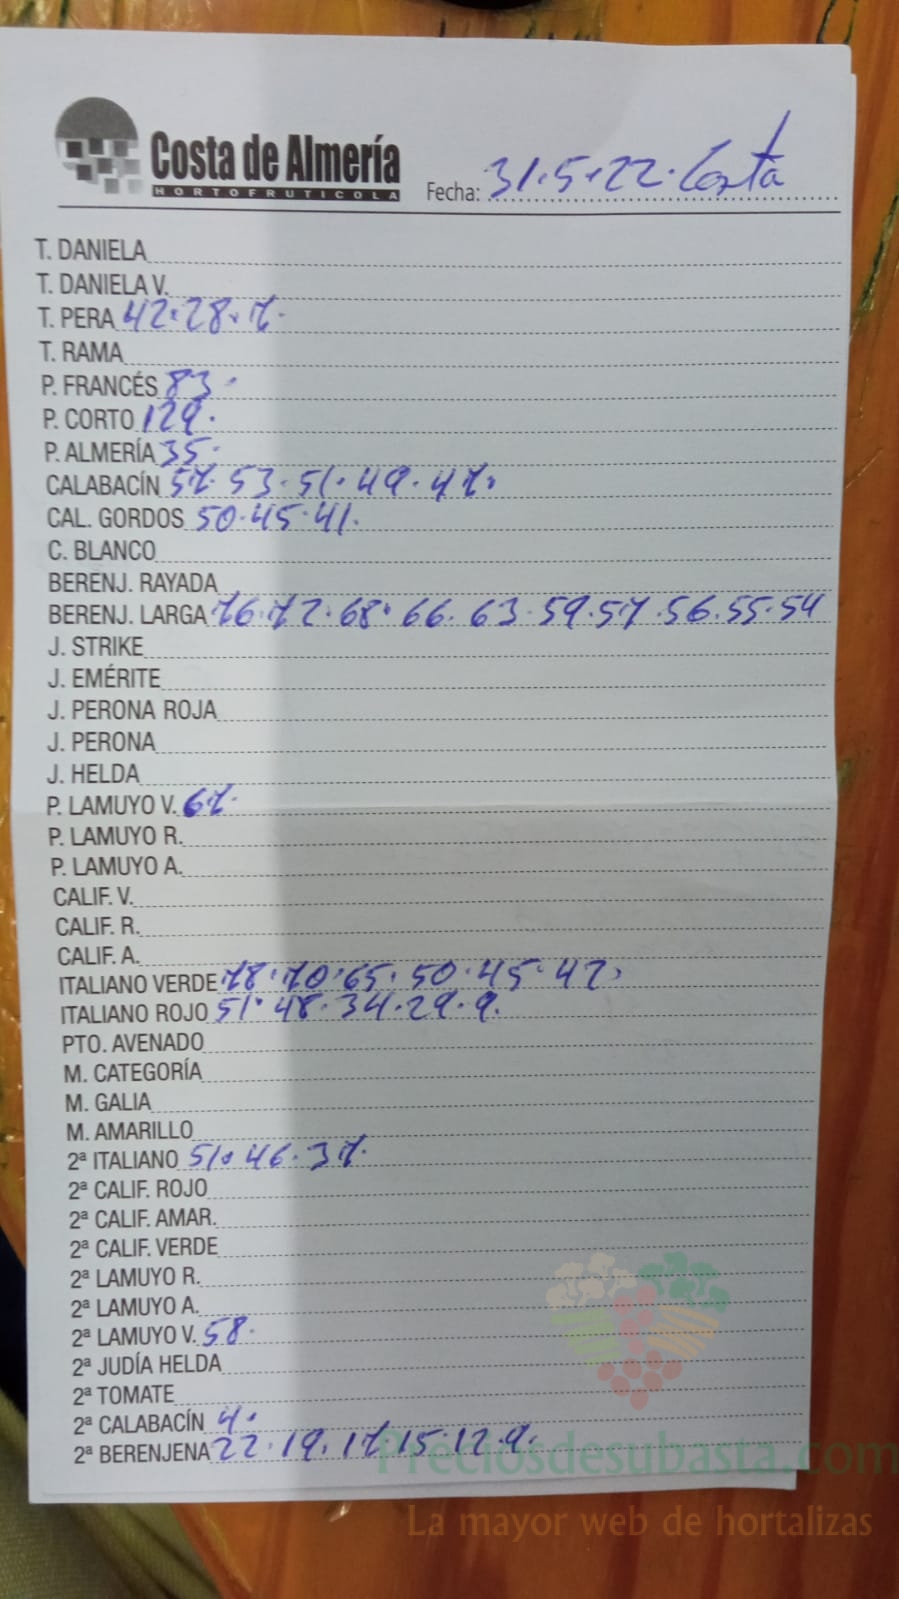 Costa de Almería
HORTOFRUTICOLA
Fecha: 31.5.22. Costa
T. DANIELA
T. DANIELA V.
T. PERA 42.28.7.
T. RAMA
P. FRANCÉS 83.
P. CORTO 129.
P. ALMERÍA 35.
CALABACÍN 57.53.51.49.47.
CAL. GORDOS 50.45.41.
C. BLANCO
BERENJ. RAYADA
BERENJ. LARGA 76.72.68.66.63.59.57.56.55.54
J. STRIKE
J. EMÉRITE
J. PERONA ROJA
J. PERONA
J. HELDA
P. LAMUYO V. 67.
P. LAMUYO R.
P. LAMUYO A.
CALIF. V.
CALIF. R.
CALIF. A.
ITALIANO VERDE 78.70.65.50.45.42.
ITALIANO ROJO 51.48.34.29.9.
PTO. AVENADO
M. CATEGORÍA
M. GALIA
M. AMARILLO
2ª ITALIANO 51.46.37.
2ª CALIF. ROJO
2ª CALIF. AMAR.
2ª CALIF. VERDE
2ª LAMUYO R.
2ª LAMUYO A.
2ª LAMUYO V. 58.
2ª JUDÍA HELDA
2ª TOMATE
2ª CALABACÍN 4.
2ª BERENJENA 22.19.17.15.12.9.
Preciosdesubasta.com
La mayor web de hortalizas